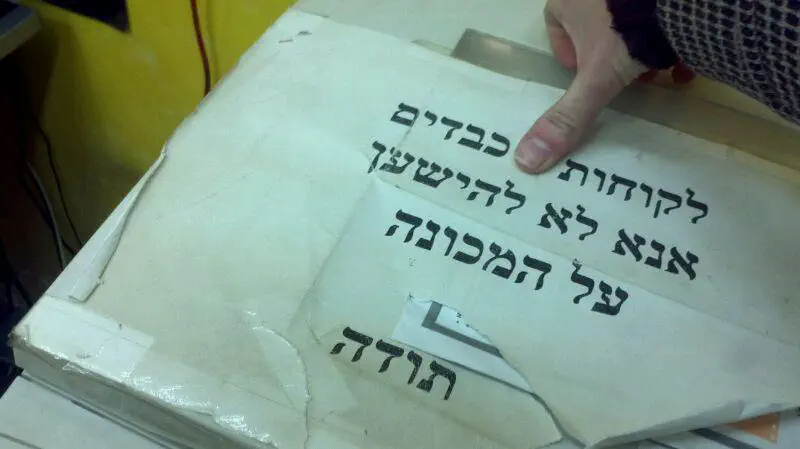 לקוחות כבדים
אנא לא להישען
על המכונה
תודה